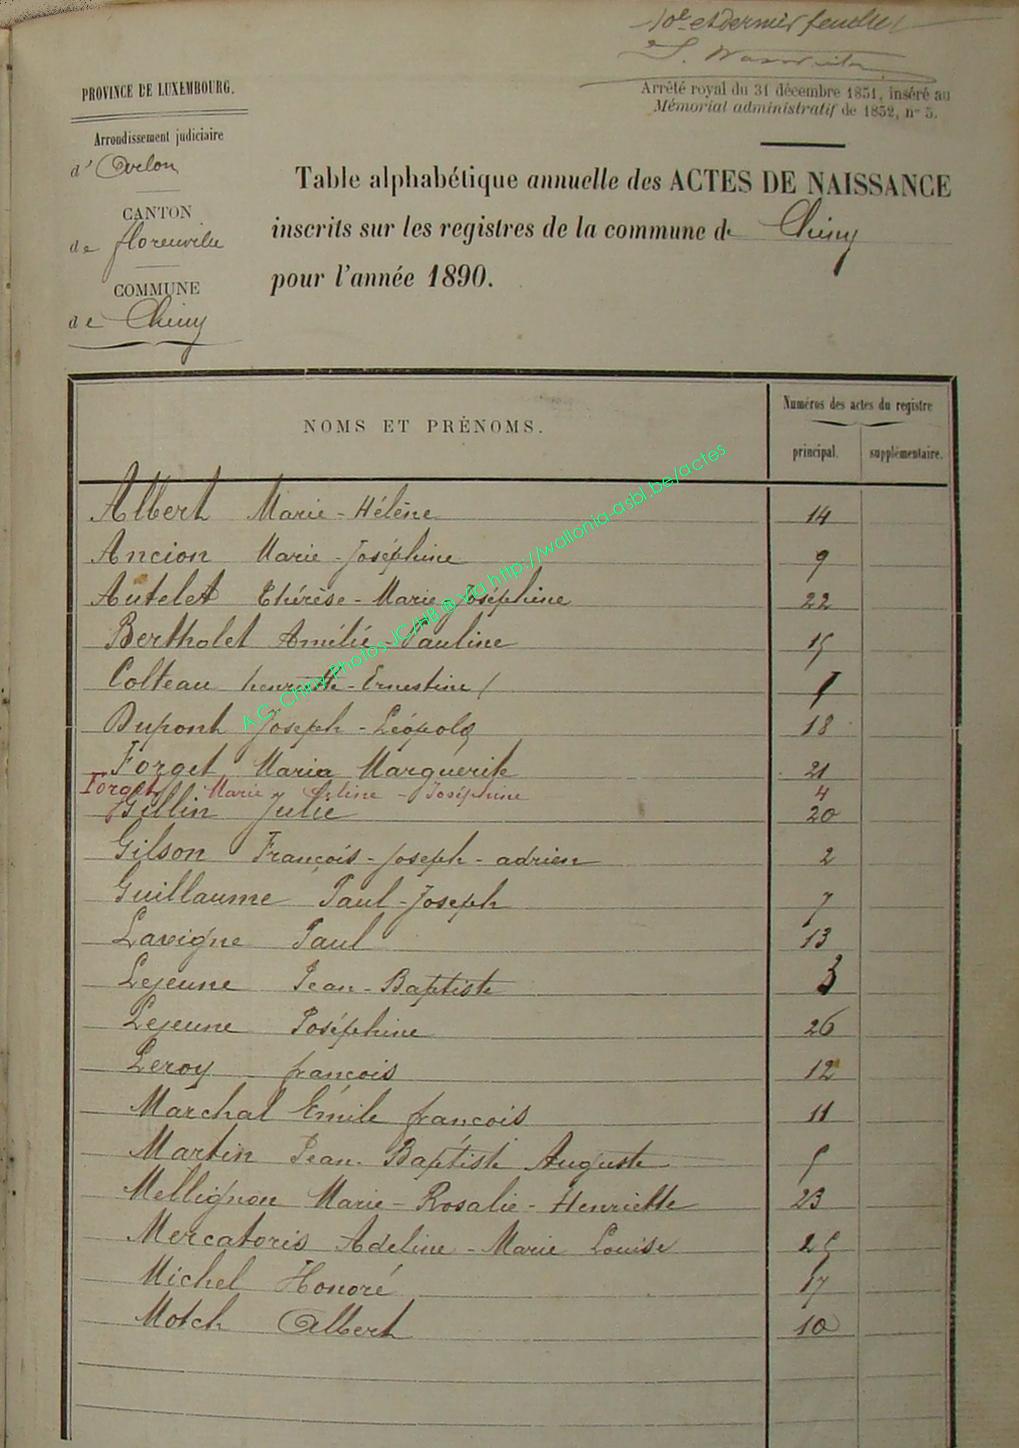 10e et dernier feuillet
Arrêté royal du 31 décembre 1851, inséré au
Mémorial administratif de 1852, no 5.
PROVINCE DE LUXEMBOURG.
Arrondissement judiciaire
d'Arlon
CANTON
de florenville
COMMUNE
de Chiny
Table alphabétique annuelle des ACTES DE NAISSANCE
inscrits sur les registres de la commune de Chiny
pour l'année 1890.
NOMS ET PRÉNOMS.
Numéros des actes du registre
principal. supplémentaire.
Albert Marie-Hélène 14
Ancion Marie-Joséphine 9
Autelet Thérèse-Marie-Joséphine 22
Bertholet Amélie Pauline 15
Colteau henriette-Ernestine
Dupont Joseph-Léopold 18
Forget Maria Marguerite 21
Forget Marie Céline-Joséphine 4
Gillin Julie 20
Gilson François-Joseph-adrien 2
Guillaume Paul-Joseph 7
Lavigne Paul 13
Lejeune Jean-Baptiste 3
Lejeune Joséphine 26
Leroy françois 12
Marchal Emile françois 11
Martin Jean-Baptiste Auguste 5
Mellignon Marie-Rosalie-Henriette 23
Mercatoris Adeline-Marie Louise 25
Michel Honoré 17
Motch Albert 10
A.C. Chiny Photos JC/HB @ via http://wallonia-asbl.be/actes